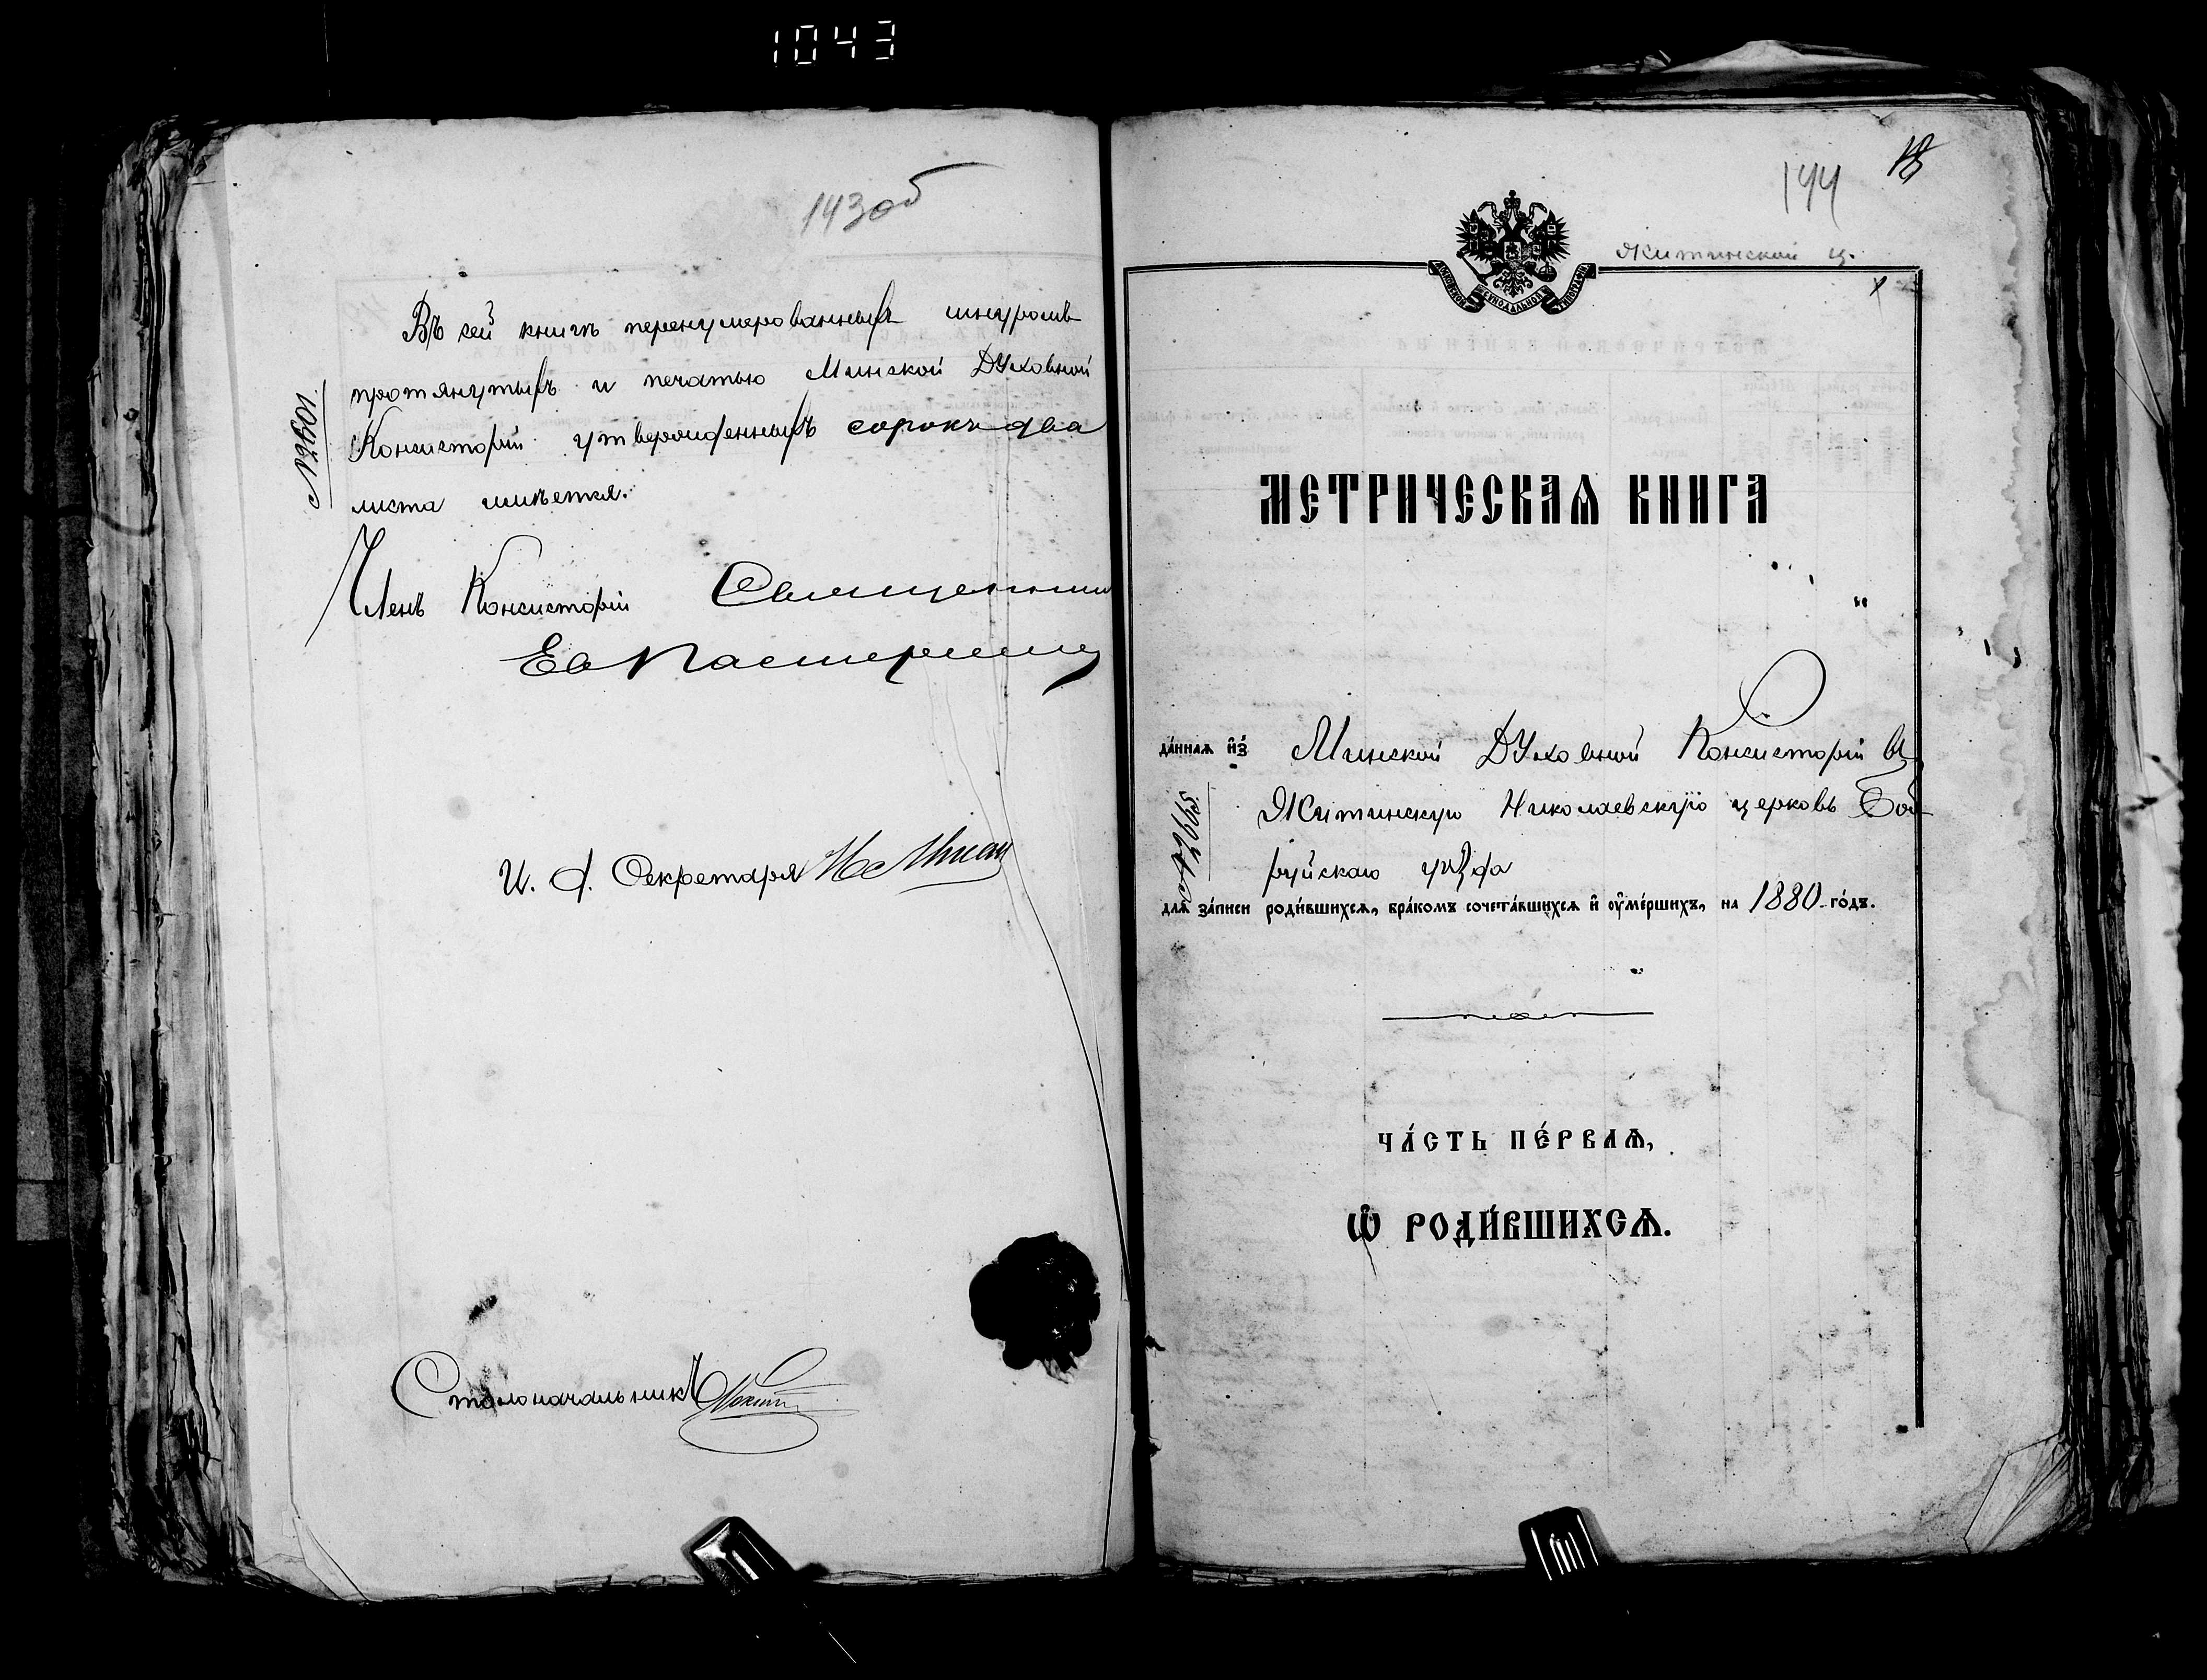 1043
143об
Въ сей книгѣ перенумерованныхъ шнуромъ
протянутыхъ и печатью Минской Духовной
Консисторіи утвержденныхъ сорокъ два
листа имѣется.
№2601.
Членъ Консисторіи Священник
Ев Пастернац
И. д. Секретаря
Столоначальникъ
144
18
Житинской ц.
МОСКОВСКОЙ СѴНОДАЛЬНОЙ ТИПОГРАФІИ
МЕТРИЧЕСКАѦ КНИГА
да́ннаѧ и҆з̾ Минской Духовной Консисторіи въ
Житинскую Николаевскую церковь Боб
руйскаго уѣзда
№2665
длѧ̀ за́писи роди́вшихсѧ, бра́комъ сочета́вшихсѧ и҆ ᲂу҆ме́ршихъ, на 1880 го́дъ.
ЧА́СТЬ ПЕ́РВАѦ,
Ѽ РОДИ́ВШИХСѦ.